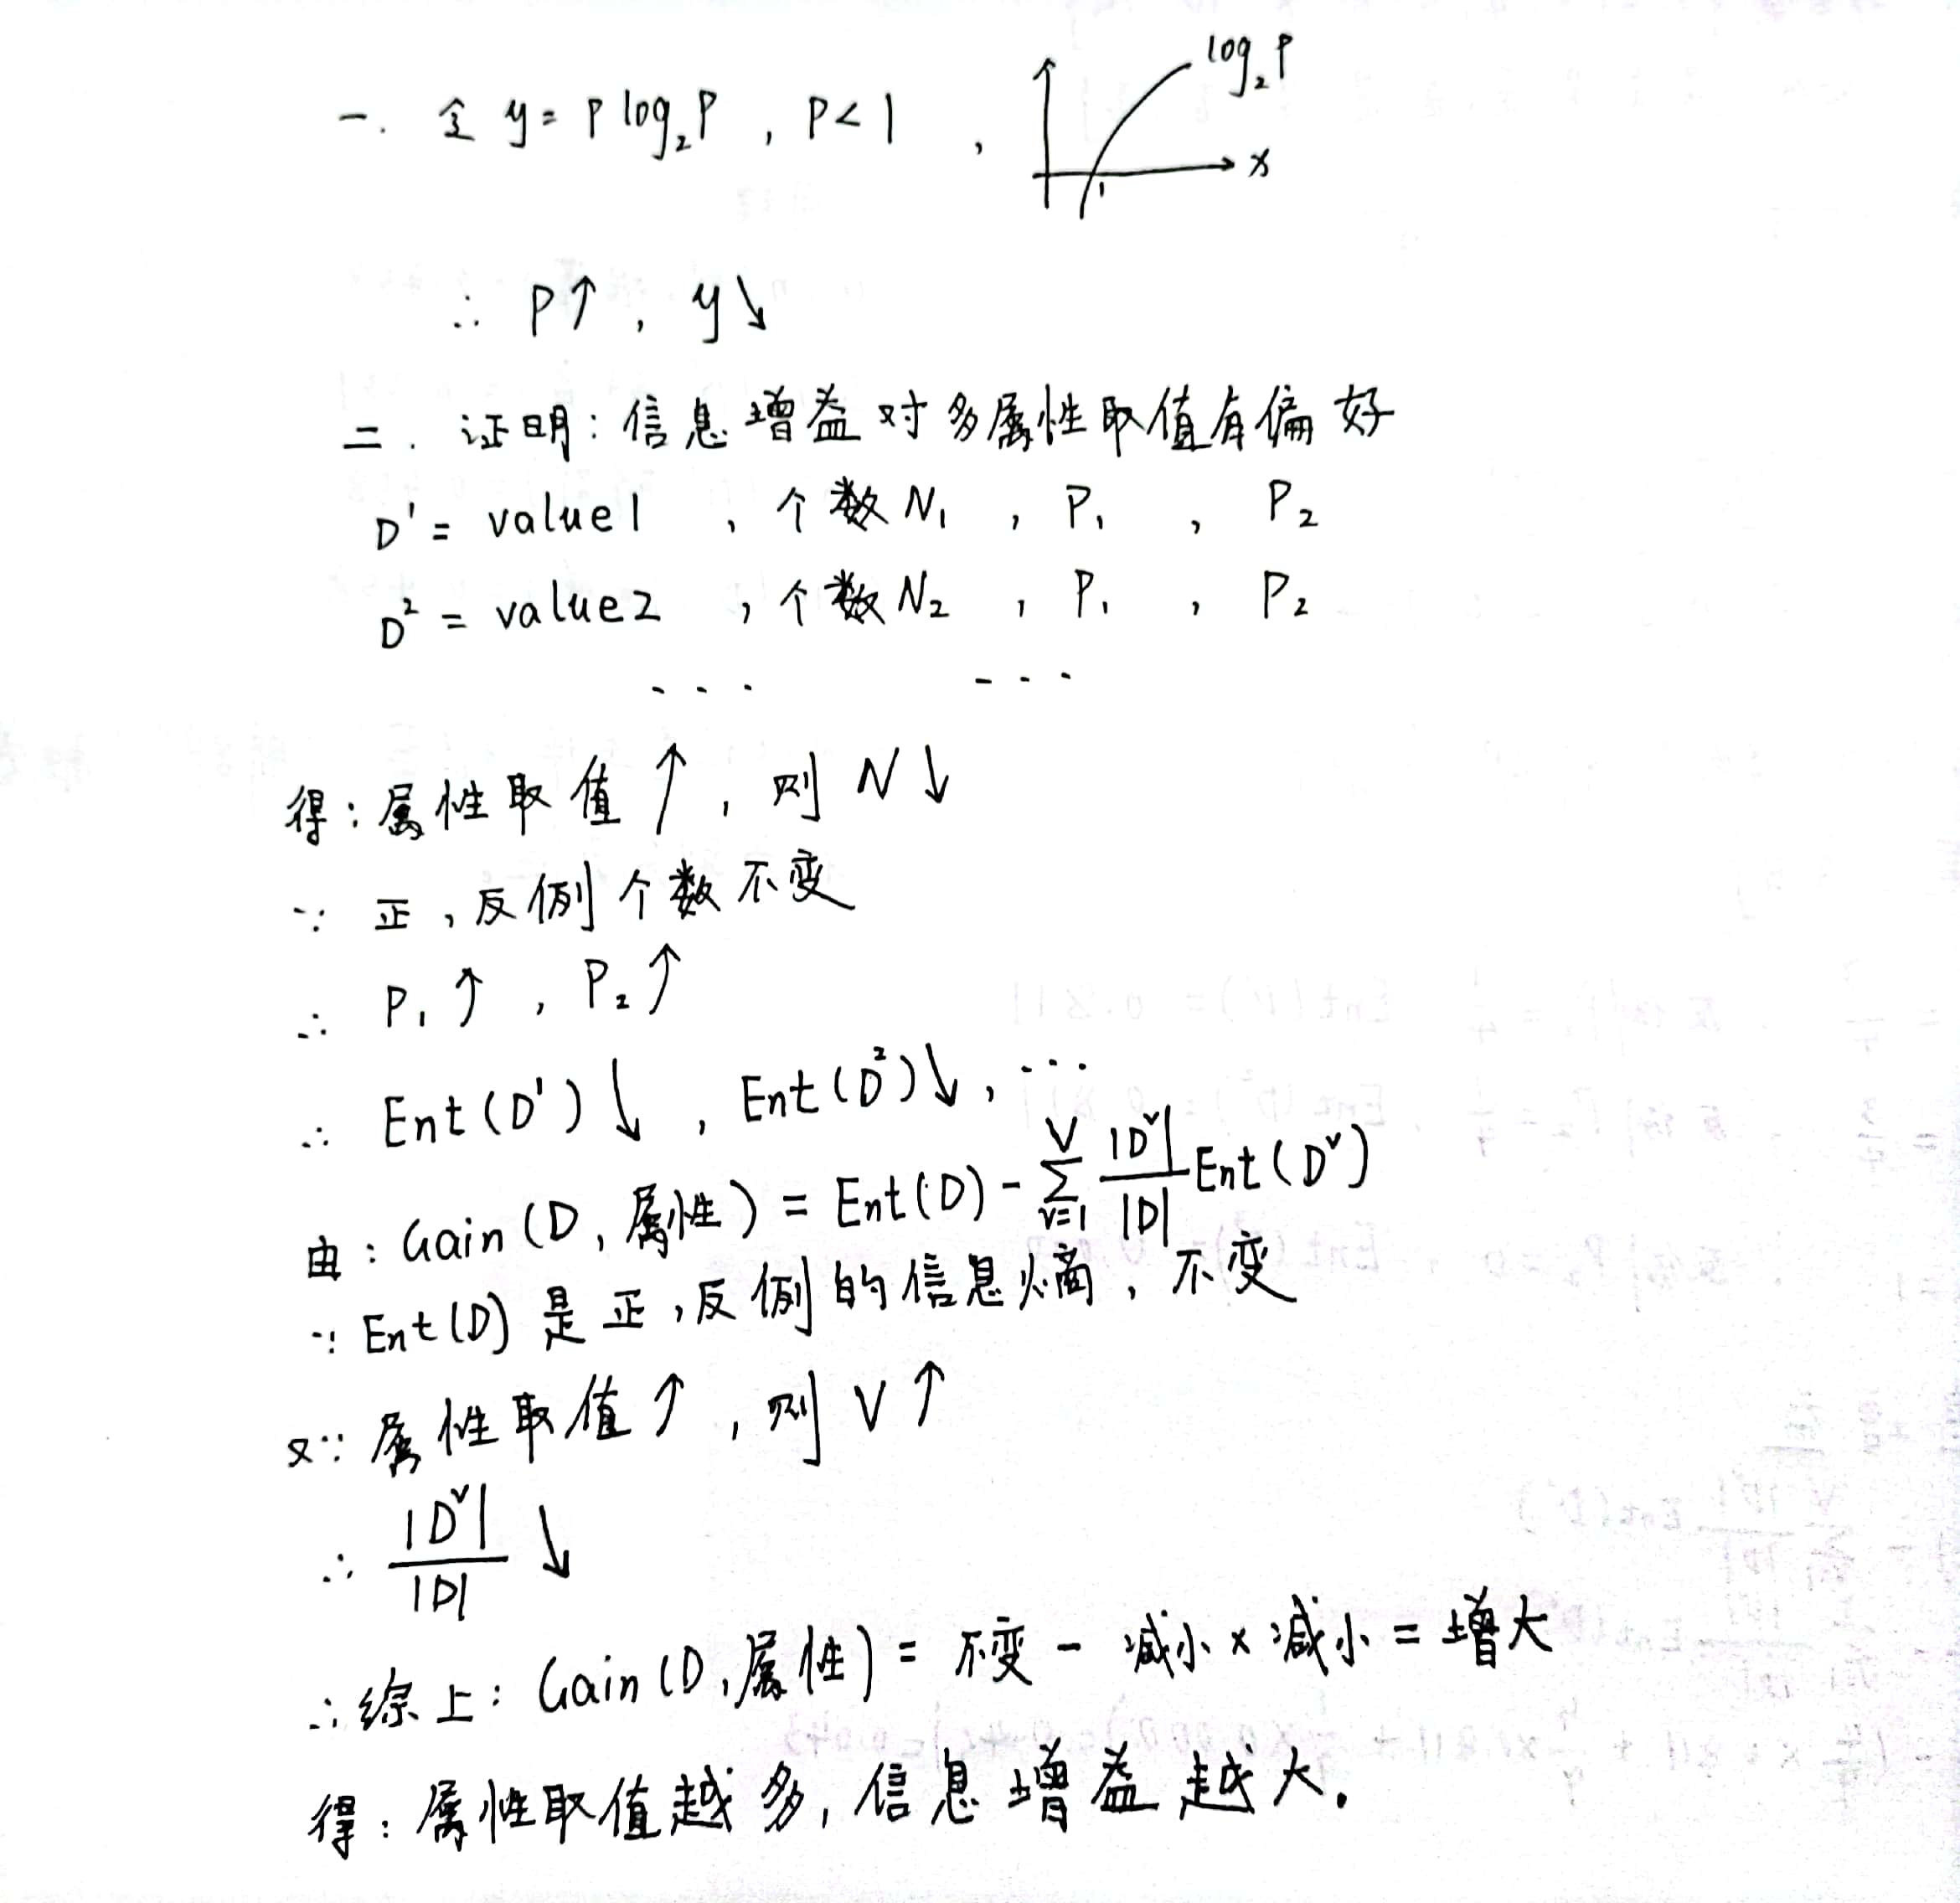 一. 令 y = P log₂P , P < 1 ,
log₂P
x
1
∴ P↑ , y↓
二. 证明: 信息增益对多属性取值有偏好
D¹ = value1 , 个数 N₁ , P₁ , P₂
D² = value2 , 个数 N₂ , P₁ , P₂
... ...
得: 属性取值↑ , 则 N↓
∵ 正, 反例个数不变
∴ P₁↑ , P₂↑
∴ Ent(D¹)↓ , Ent(D²)↓, ...
由: Gain(D, 属性) = Ent(D) - ∑_{v=1}^{V} |Dᵛ|/|D| Ent(Dᵛ)
∵ Ent(D) 是正, 反例的信息熵, 不变
又∵ 属性取值↑ , 则 V↑
∴ |Dᵛ|/|D| ↓
∴ 综上: Gain(D, 属性) = 不变 - 减小 × 减小 = 增大
得: 属性取值越多, 信息增益越大。